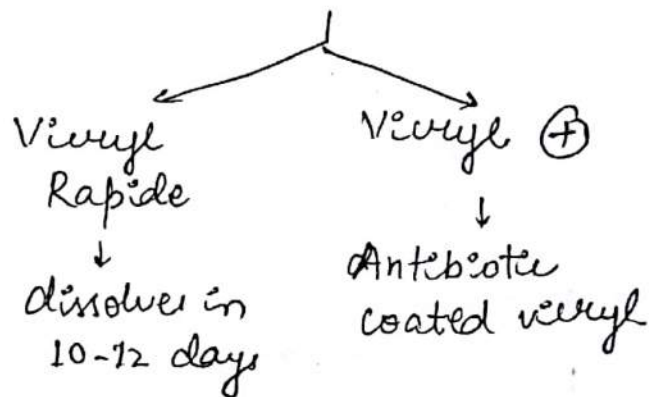 Vicryl
Rapide
dissolves in
10-12 days
Vicryl +
Antibiotic
coated vicryl